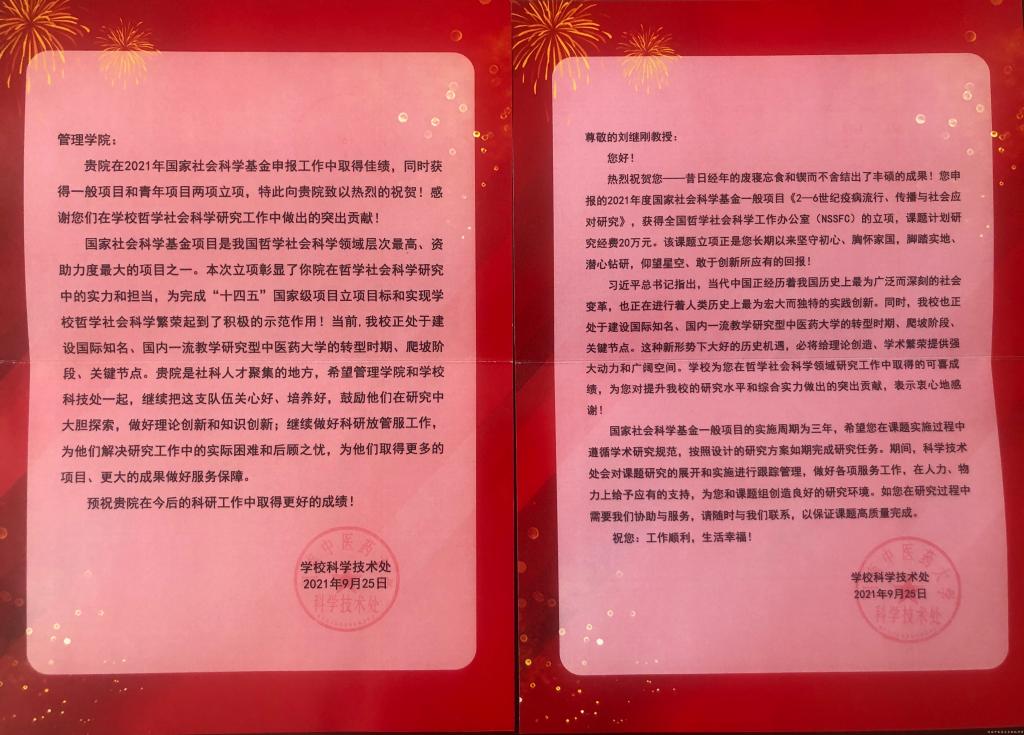 管理学院：
贵院在2021年国家社会科学基金申报工作中取得佳绩，同时获
得一般项目和青年项目两项立项，特此向贵院致以热烈的祝贺！感
谢您们在学校哲学社会科学研究工作中做出的突出贡献！
国家社会科学基金项目是我国哲学社会科学领域层次最高、资
助力度最大的项目之一。本次立项彰显了你院在哲学社会科学研究
中的实力和担当，为完成“十四五”国家级项目立项目标和实现学
校哲学社会科学繁荣起到了积极的示范作用！当前,我校正处于建
设国际知名、国内一流教学研究型中医药大学的转型时期、爬坡阶
段、关键节点。贵院是社科人才聚集的地方，希望管理学院和学校
科技处一起，继续把这支队伍关心好、培养好，鼓励他们在研究中
大胆探索，做好理论创新和知识创新；继续做好科研放管服工作，
为他们解决研究工作中的实际困难和后顾之忧，为他们取得更多的
项目、更大的成果做好服务保障。
预祝贵院在今后的科研工作中取得更好的成绩！
学校科学技术处
2021年9月25日
中医药
科学技术处
尊敬的刘继刚教授：
您好！
热烈祝贺您——昔日经年的废寝忘食和锲而不舍结出了丰硕的成果！您申
报的2021年度国家社会科学基金一般项目《2—6世纪疫病流行、传播与社会应
对研究》，获得全国哲学社会科学工作办公室（NSSFC）的立项，课题计划研
究经费20万元。该课题立项正是您长期以来坚守初心、胸怀家国，脚踏实地、
潜心钻研，仰望星空、敢于创新所应有的回报！
习近平总书记指出，当代中国正经历着我国历史上最为广泛而深刻的社会
变革，也正在进行着人类历史上最为宏大而独特的实践创新。同时，我校也正
处于建设国际知名、国内一流教学研究型中医药大学的转型时期、爬坡阶段、
关键节点。这种新形势下大好的历史机遇，必将给理论创造、学术繁荣提供强
大动力和广阔空间。学校为您在哲学社会科学领域研究工作中取得的可喜成
绩，为您对提升我校的研究水平和综合实力做出的突出贡献，表示衷心地感
谢！
国家社会科学基金一般项目的实施周期为三年，希望您在课题实施过程中
遵循学术研究规范，按照设计的研究方案如期完成研究任务。期间，科学技术
处会对课题研究的展开和实施进行跟踪管理，做好各项服务工作，在人力、物
力上给予应有的支持，为您和课题组创造良好的研究环境。如您在研究过程中
需要我们协助与服务，请随时与我们联系，以保证课题高质量完成。
祝您：工作顺利，生活幸福！
学校科学技术处
2021年9月25日
中医药大学
科学技术处